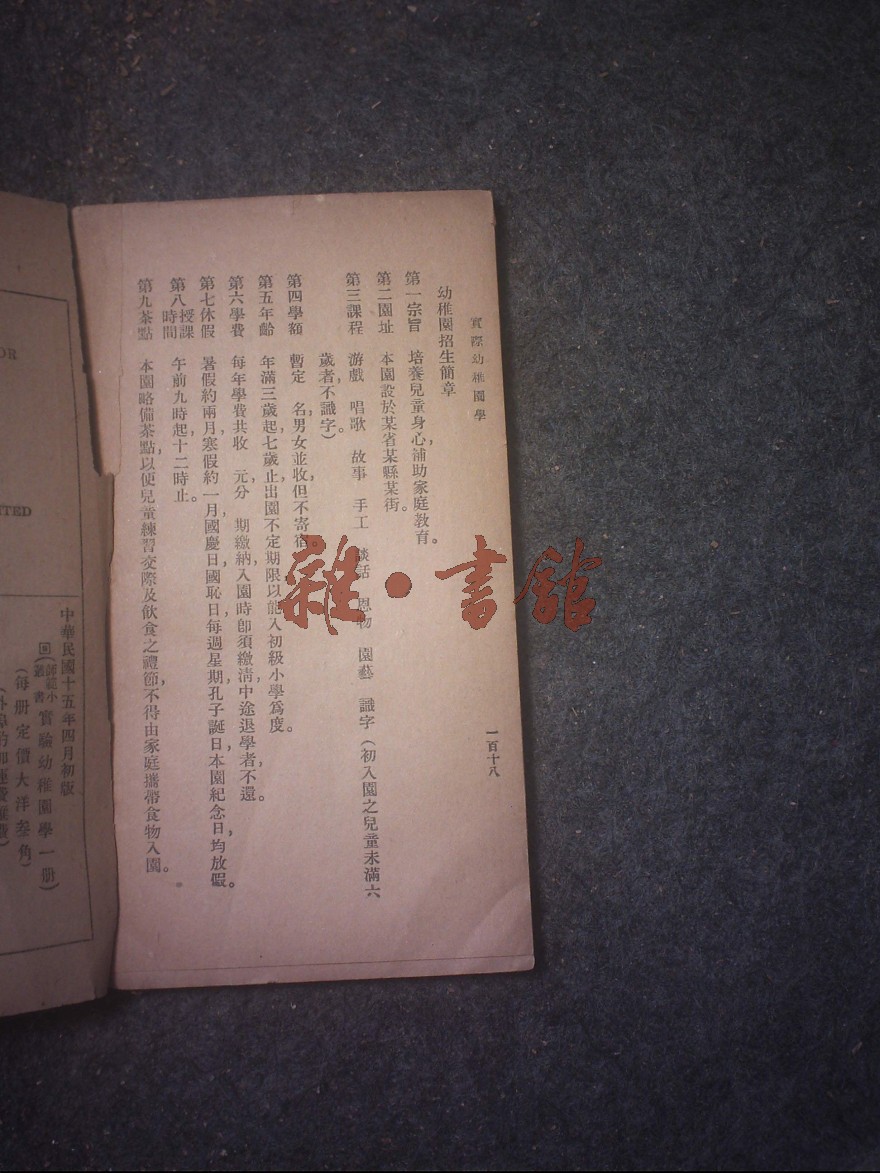 實際幼稚園學
一百十八
幼稚園招生簡章
第一宗旨　培養兒童身心，補助家庭教育。
第二園址　本園設於某省某縣某街。
第三課程　游戲　唱歌　故事　手工　談話　恩物　園藝　識字（初入園之兒童未滿六
歲者，不識字）。
第四學額　暫定　名，男女並收，但不寄宿。
第五年齡　年滿三歲起，七歲止，出園不定期限，以能入初級小學爲度。
第六學費　每年學費共收　元，分　期繳納，入園時卽須繳清，中途退學者，不還。
第七休假　暑假約兩月，寒假約一月，國慶日，國恥日，每週星期，孔子誕日，本園紀念日，均放假。
第八授課時間　午前九時起，十二時止。
第九茶點　本園略備茶點，以便兒童練習交際及飲食之禮節，不得由家庭攜帶食物入園。
雜·書館
OR
ITED
中華民國十五年四月初版
師範小叢書
實驗幼稚園學一册）
（每册定價大洋叁角）